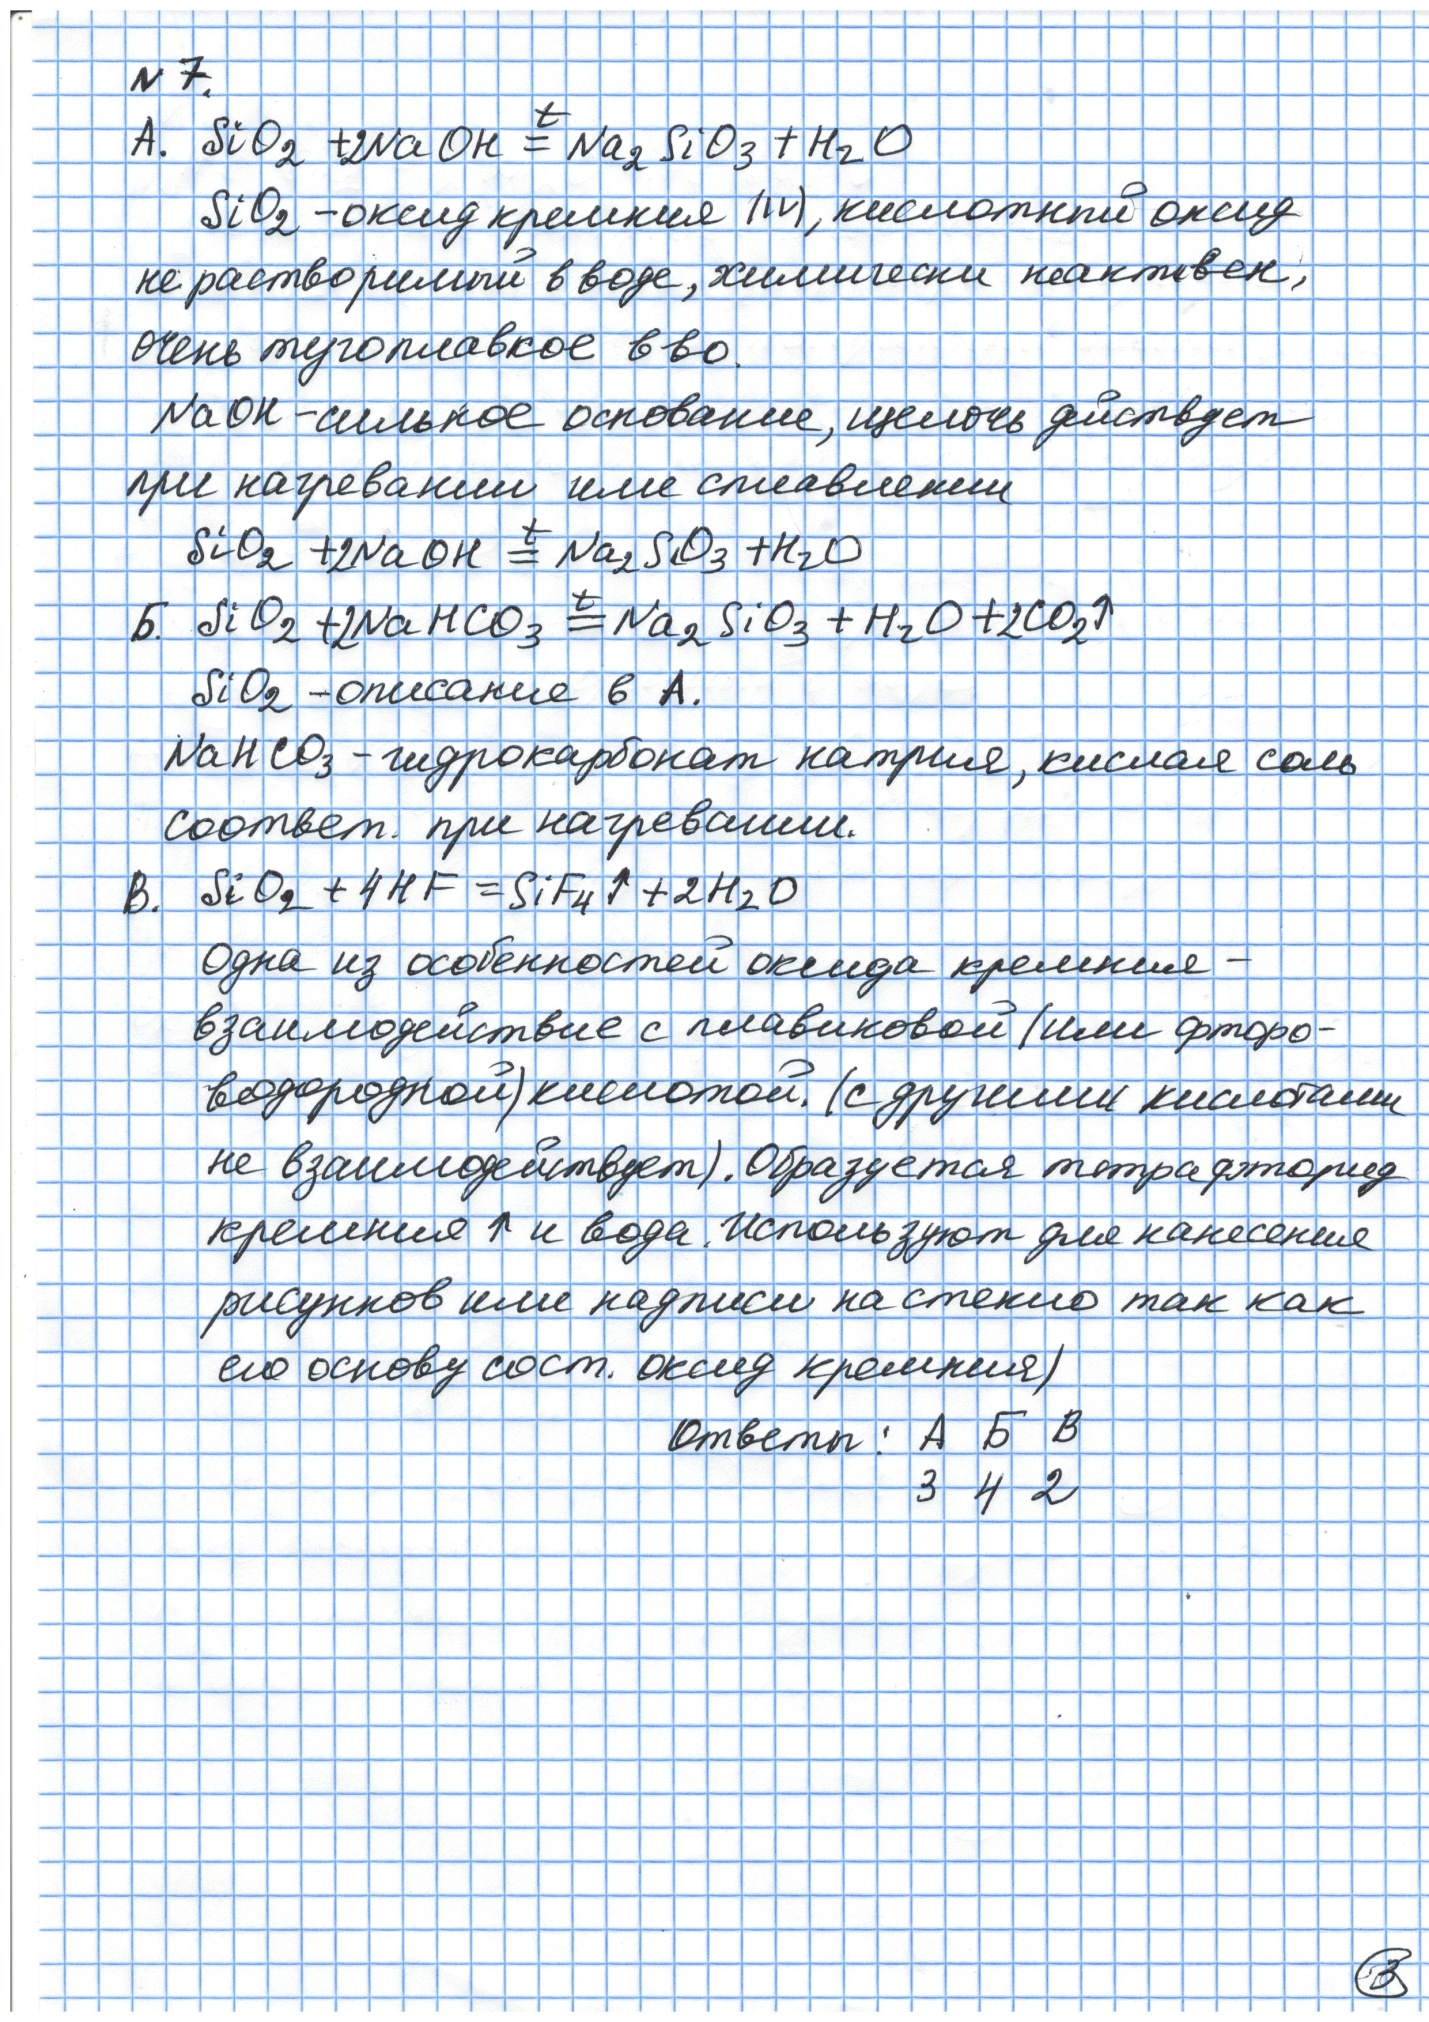 N 7.
А. SiO2 +2NaOH =t Na2SiO3 + H2O
SiO2 - оксид кремния (IV), кислотный оксид
не растворимый в воде, химически неактивен,
очень тугоплавкое в-во.
NaOH - сильное основание, щелочь действует
при нагревании или сплавлении
SiO2 +2NaOH =t Na2SiO3 +H2O
Б. SiO2 +2NaHCO3 =t Na2SiO3 + H2O +2CO2↑
SiO2 - описание в А.
NaHCO3 - гидрокарбонат натрия, кислая соль
соответ. при нагревании.
В. SiO2 + 4HF = SiF4↑ + 2H2O
Одна из особенностей оксида кремния -
взаимодействие с плавиковой (или фторо-
водородной) кислотой. (с другими кислотами
не взаимодействует). Образуется тетрафторид
кремния ↑ и вода. Используют для нанесения
рисунков или надписи на стекло так как
его основу сост. оксид кремния)
Ответы: А Б В
3 4 2
3